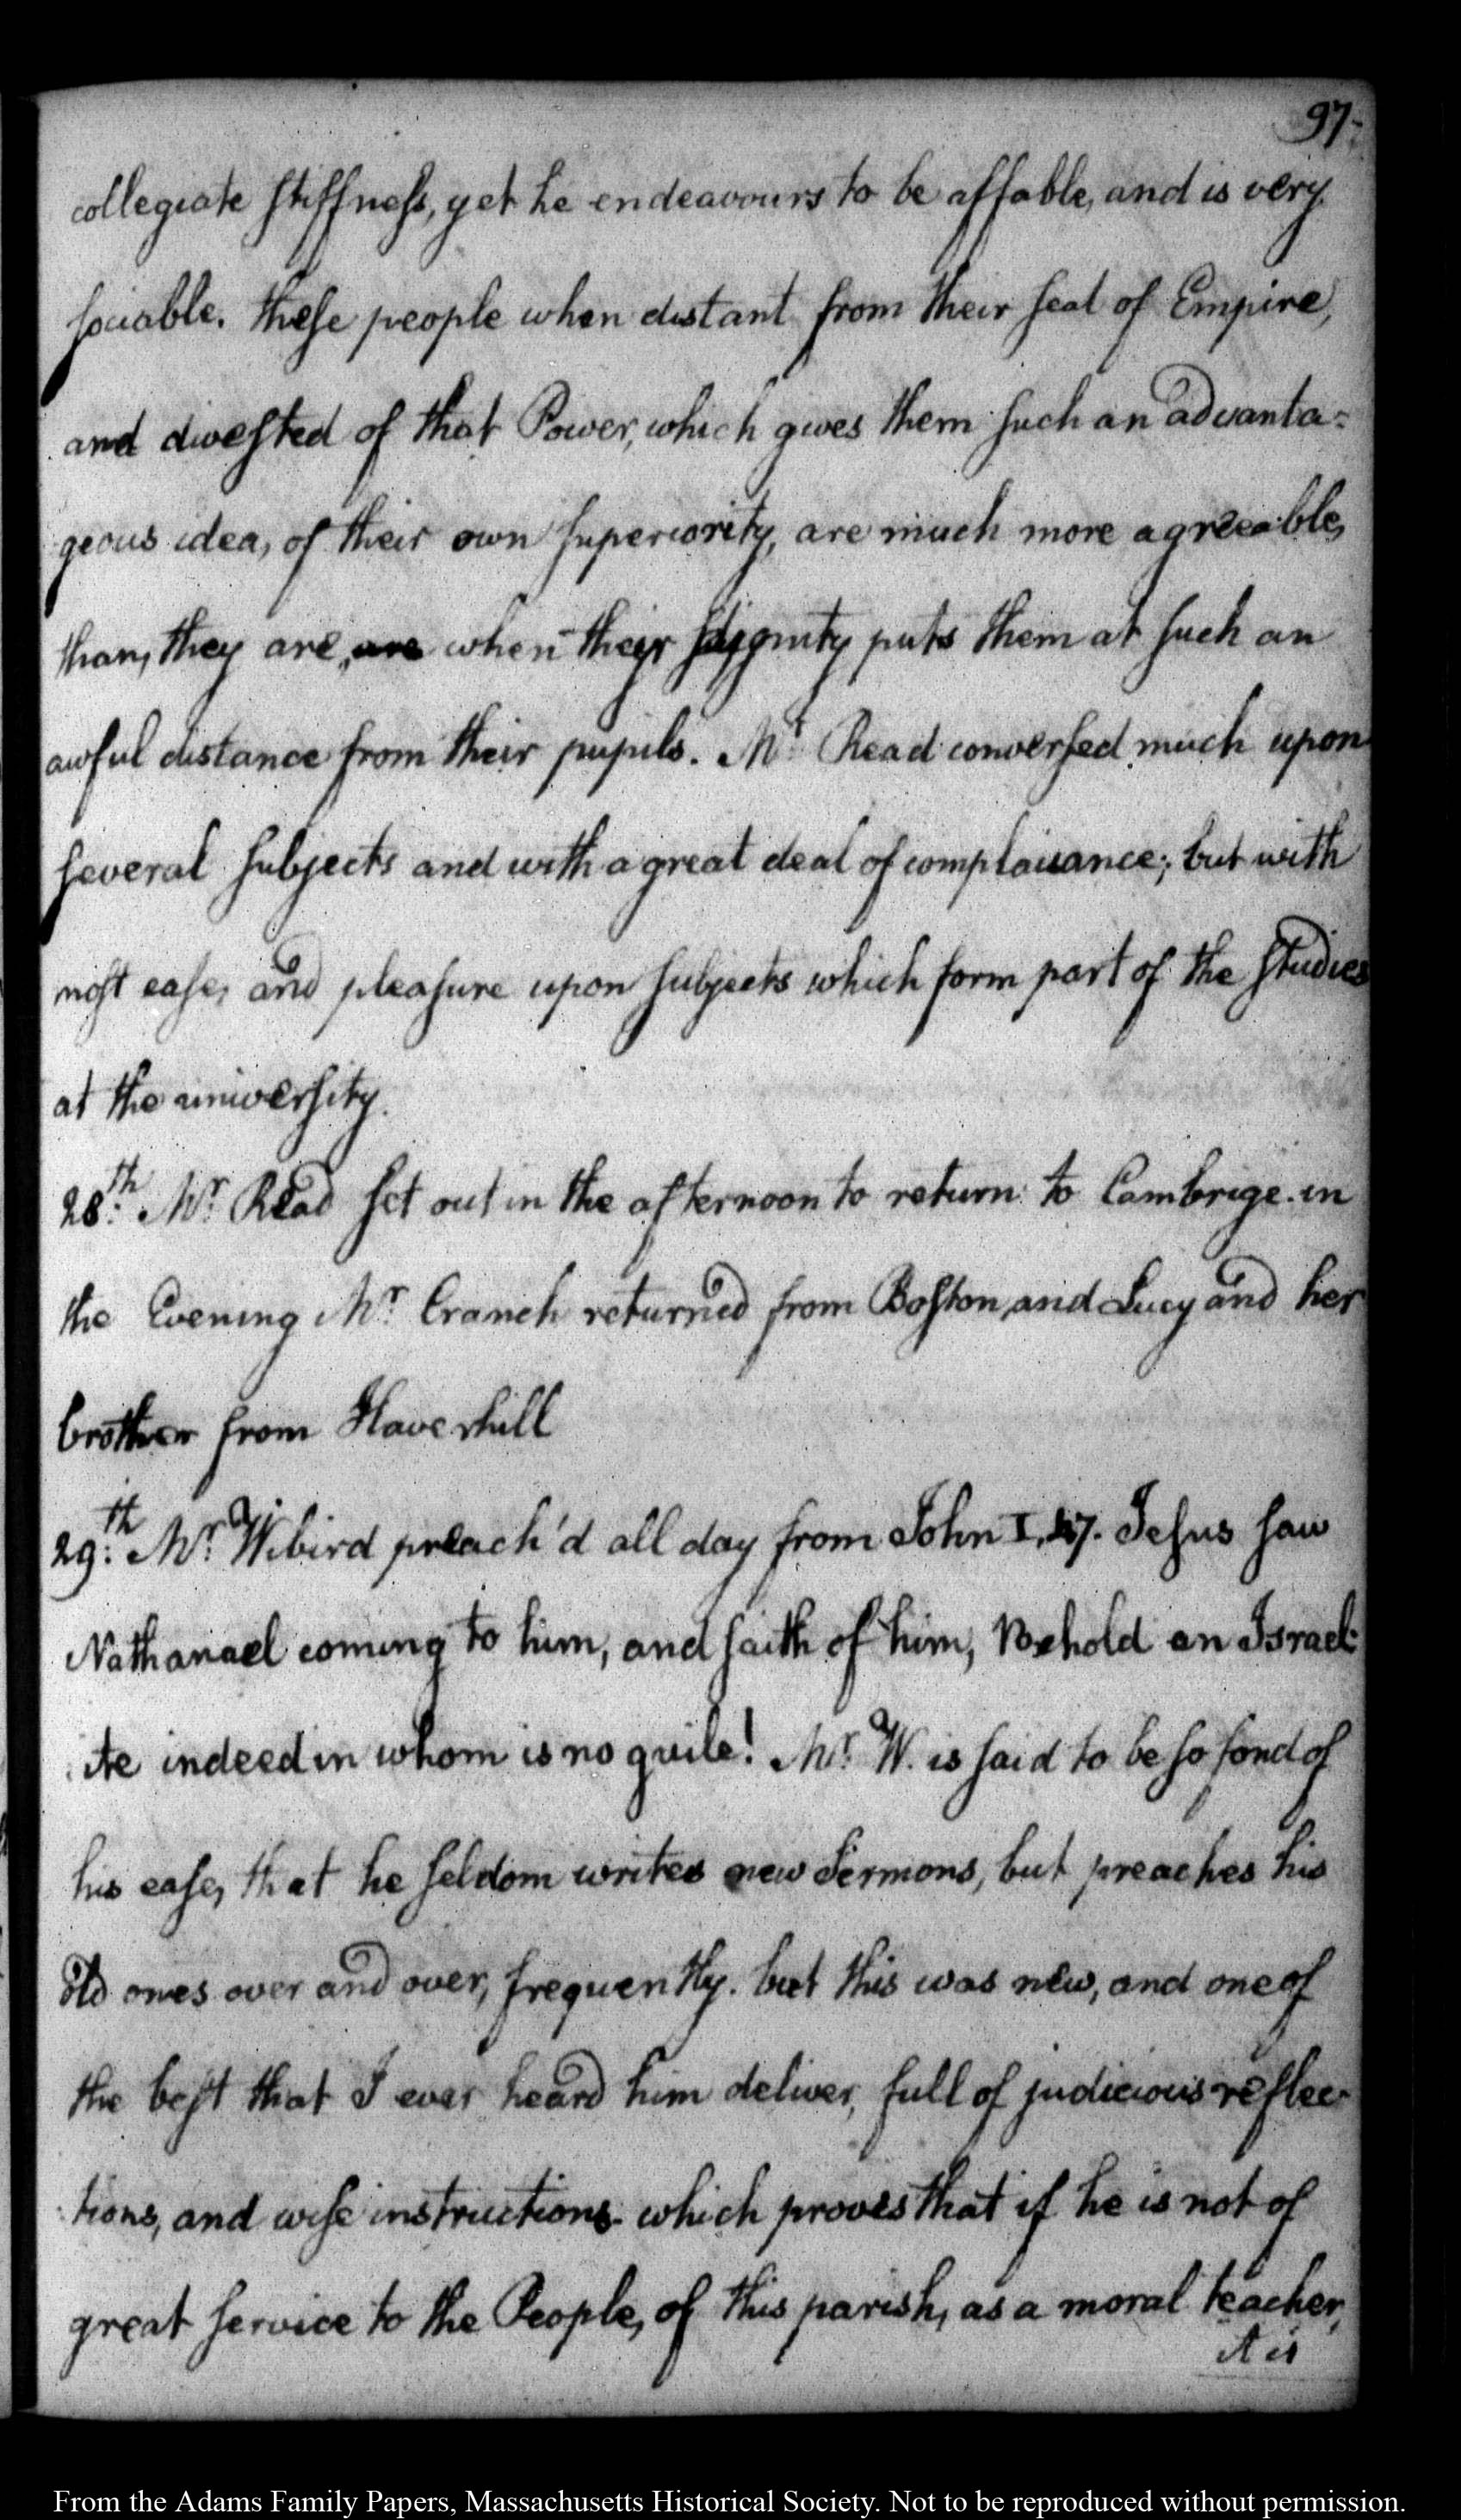 97.
collegiate stiffness, yet he endeavours to be affable, and is very
sociable. these people when distant from their seat of Empire,
and divested of that Power, which gives them such an advanta=
geous idea, of their own superiority, are much more agreeable,
than, they are, are when their dignity puts them at such an
awful distance from their pupils. Mr. Read conversed much upon
several subjects and with a great deal of complaisance; but with
most ease, and pleasure upon subjects which form part of the studies
at the university.
28th. Mr. Read set out in the afternoon to return to Cambrige. in
the Evening Mr. Cranch returned from Boston, and Lucy and her
brother from Haverhill
29th. Mr. Wibird preach'd all day from John I. 47. Jesus saw
Nathanael coming to him, and saith of him, Behold an Israel-
ite indeed in whom is no guile! Mr. W. is said to be so fond of
his ease, that he seldom writes new Sermons, but preaches his
old ones over and over, frequently. but this was new, and one of
the best that I ever heard him deliver, full of judicious reflec-
tions, and wise instructions. which proves that if he is not of
great service to the People, of this parish, as a moral teacher,
it is
From the Adams Family Papers, Massachusetts Historical Society. Not to be reproduced without permission.